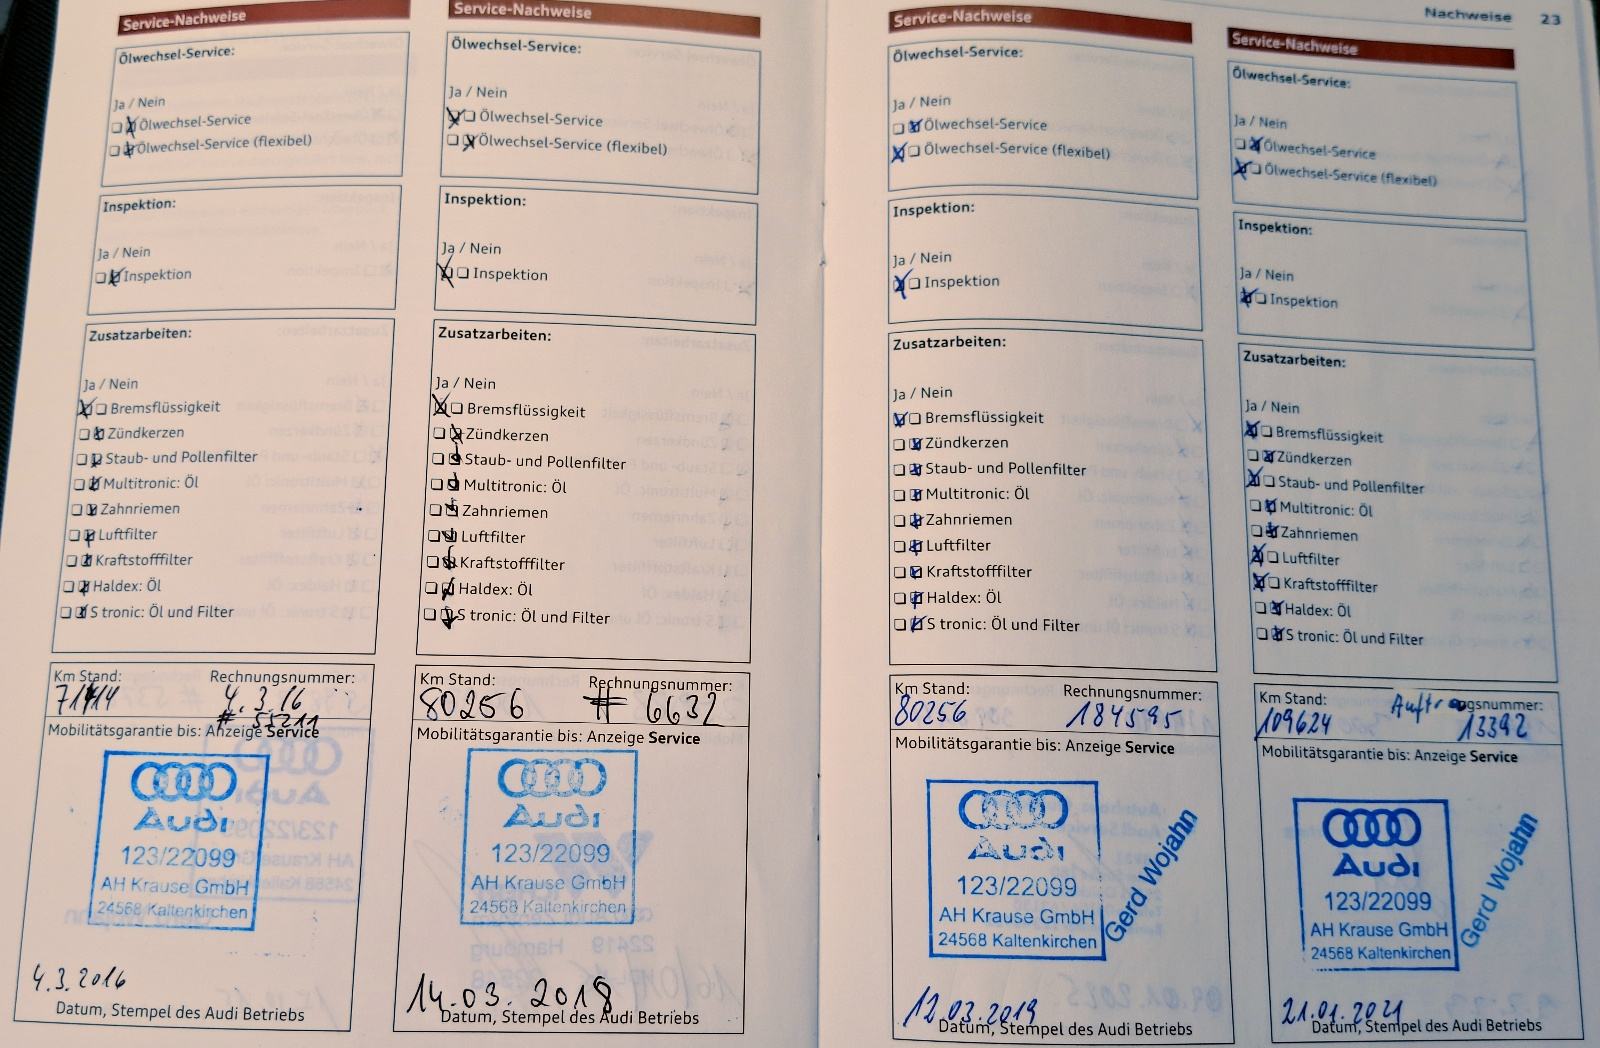 Service-Nachweise
Ölwechsel-Service:
Ja / Nein
Ölwechsel-Service
Ölwechsel-Service (flexibel)
Inspektion:
Ja / Nein
Inspektion
Zusatzarbeiten:
Ja / Nein
Bremsflüssigkeit
Zündkerzen
Staub- und Pollenfilter
Multitronic: Öl
Zahnriemen
Luftfilter
Kraftstofffilter
Haldex: Öl
S tronic: Öl und Filter
Km Stand: Rechnungsnummer:
4.3.16
# 55211
Mobilitätsgarantie bis: Anzeige Service
Audi
123/22099
AH Krause GmbH
24568 Kaltenkirchen
4.3.2016
Datum, Stempel des Audi Betriebs
Service-Nachweise
Ölwechsel-Service:
Ja / Nein
Ölwechsel-Service
Ölwechsel-Service (flexibel)
Inspektion:
Ja / Nein
Inspektion
Zusatzarbeiten:
Ja / Nein
Bremsflüssigkeit
Zündkerzen
Staub- und Pollenfilter
Multitronic: Öl
Zahnriemen
Luftfilter
Kraftstofffilter
Haldex: Öl
S tronic: Öl und Filter
Km Stand: Rechnungsnummer:
80256 # 6632
Mobilitätsgarantie bis: Anzeige Service
Audi
123/22099
AH Krause GmbH
24568 Kaltenkirchen
14.03.2018
Datum, Stempel des Audi Betriebs
Nachweise 23
Service-Nachweise
Ölwechsel-Service:
Ja / Nein
Ölwechsel-Service
Ölwechsel-Service (flexibel)
Inspektion:
Ja / Nein
Inspektion
Zusatzarbeiten:
Ja / Nein
Bremsflüssigkeit
Zündkerzen
Staub- und Pollenfilter
Multitronic: Öl
Zahnriemen
Luftfilter
Kraftstofffilter
Haldex: Öl
S tronic: Öl und Filter
Km Stand: Rechnungsnummer:
80256 184595
Mobilitätsgarantie bis: Anzeige Service
Audi
123/22099
AH Krause GmbH
24568 Kaltenkirchen
Gerd Wojahn
12.03.2019
Datum, Stempel des Audi Betriebs
Service-Nachweise
Ölwechsel-Service:
Ja / Nein
Ölwechsel-Service
Ölwechsel-Service (flexibel)
Inspektion:
Ja / Nein
Inspektion
Zusatzarbeiten:
Ja / Nein
Bremsflüssigkeit
Zündkerzen
Staub- und Pollenfilter
Multitronic: Öl
Zahnriemen
Luftfilter
Kraftstofffilter
Haldex: Öl
S tronic: Öl und Filter
Km Stand: Auftragsnummer:
109624 13392
Mobilitätsgarantie bis: Anzeige Service
Audi
123/22099
AH Krause GmbH
24568 Kaltenkirchen
Gerd Wojahn
21.01.2021
Datum, Stempel des Audi Betriebs